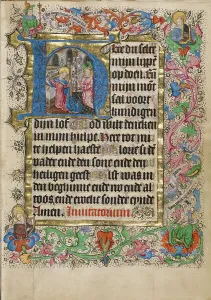 Here du selt
mijn lippē
op doen. En̄
mijn mōt
sal voort
kundigen
dijn lof. God wilt dencken
in mine hulpe. Here tot mi
te helpen haeste Glorie si dē
vader ende den sone ende den
heiligen geest Als was in
den beghinne ende nu ende al
toos, ende ewelic sonder eynde
Amen. Inuitatorium